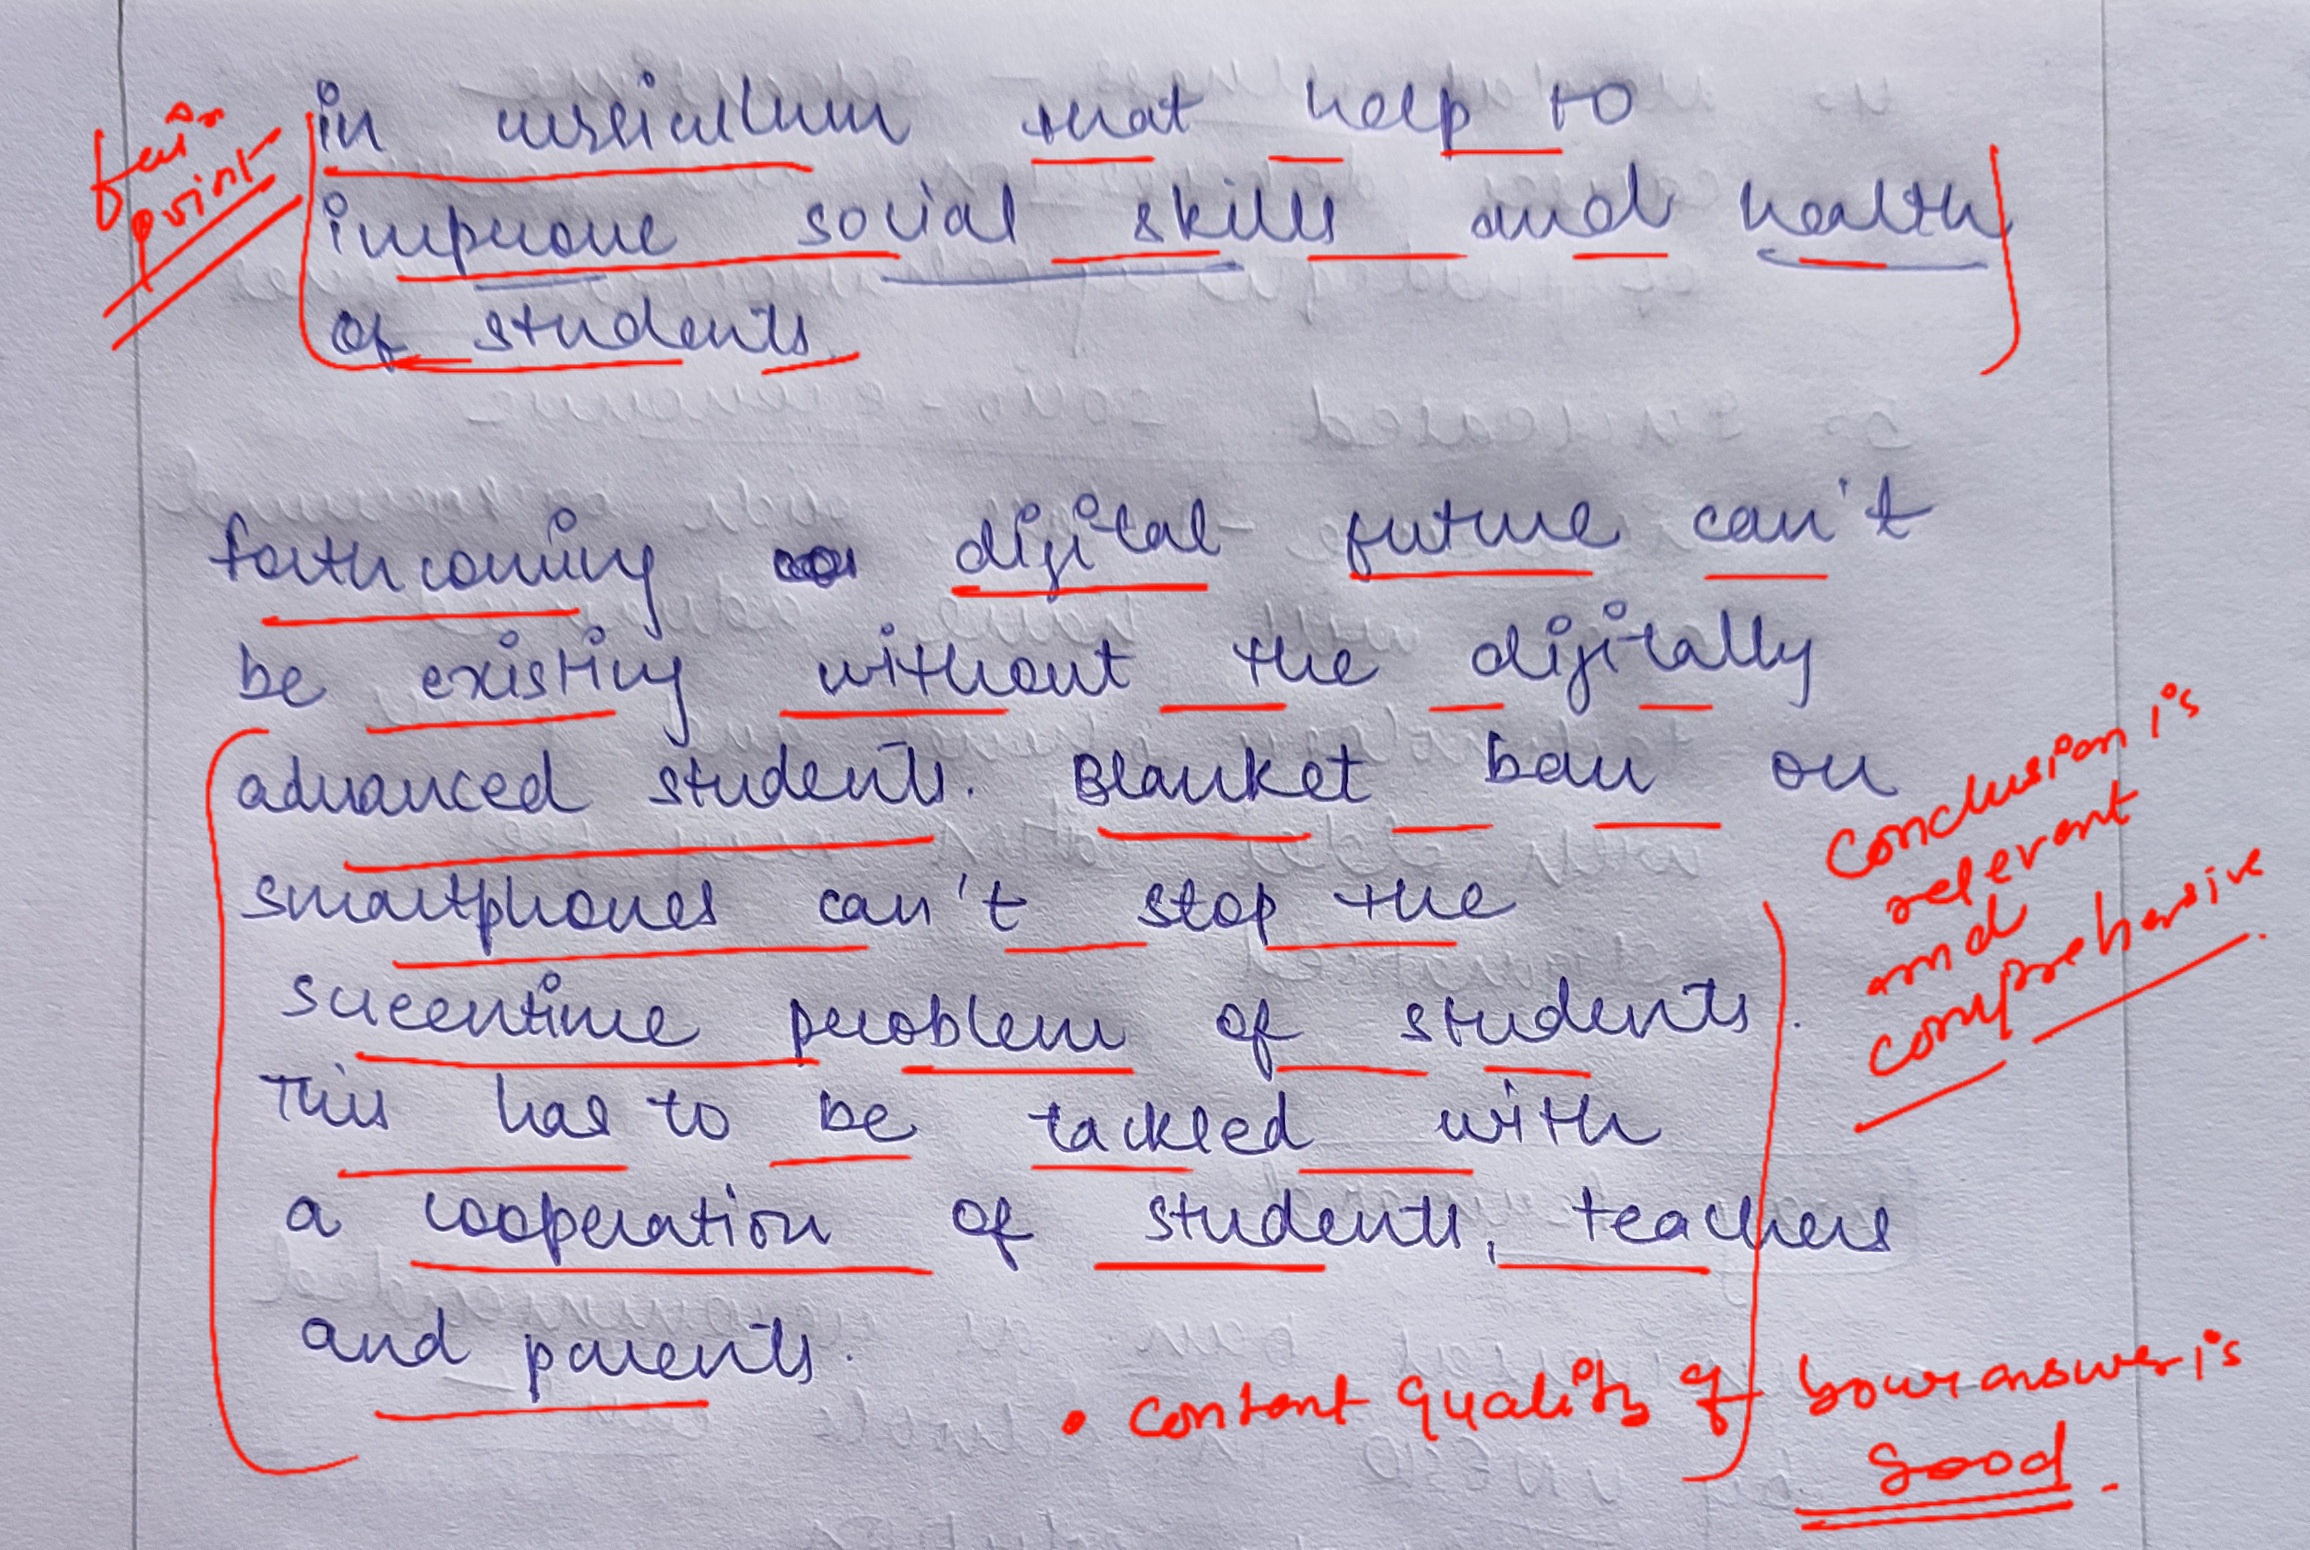 fair
point
in curriculum that help to
improve social skills and health
of students
forthcoming digital future can't
be existing without the digitally
advanced students. Blanket ban on
smartphones can't stop the
screentime problem of students.
This has to be tackled with
a cooperation of students, teachers
and parents.
Conclusion is
relevant
and
comprehensive.
• content quality of your answer is
good.